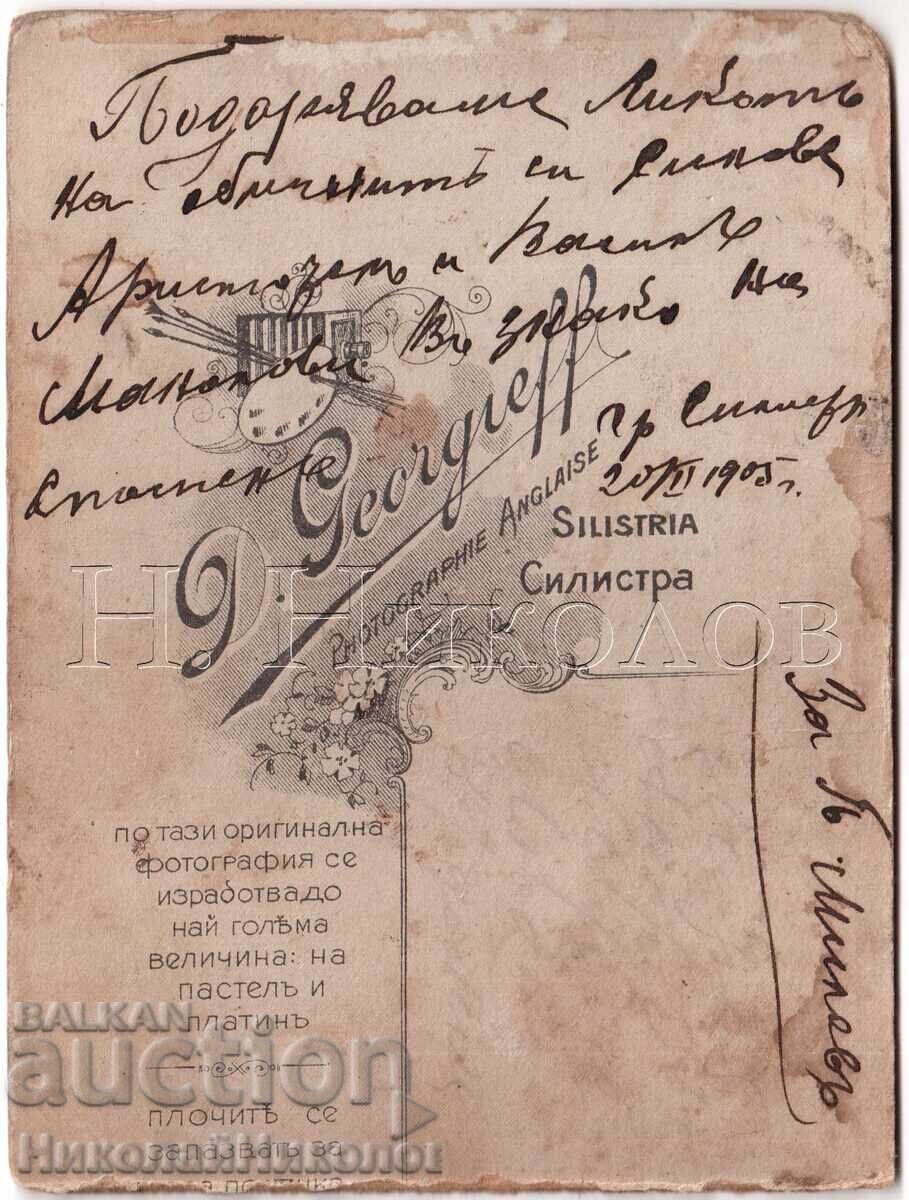 Подоряваме Ликътъ
На обичнитѣ си Синове
и Василъ
Въ знакъ на
гр Силистр
20/XI 1905 г.
D. Georgieff
Photographie Anglaise
Silistria
Силистра
Н. Николов
За П. Милевъ
по тази оригинална
фотография се
изработвадо
най голѣма
величина: на
пастелъ и
платинъ
плочитѣ се
запазватъ за
BALKAN
auction
НиколайНиколов